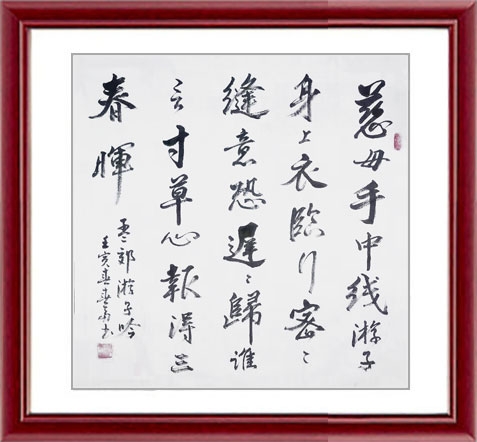 慈母手中线游子
身上衣臨行密〻
縫意恐遲〻歸誰
言寸草心報得三
春暉
孟郊游子吟
壬寅春書